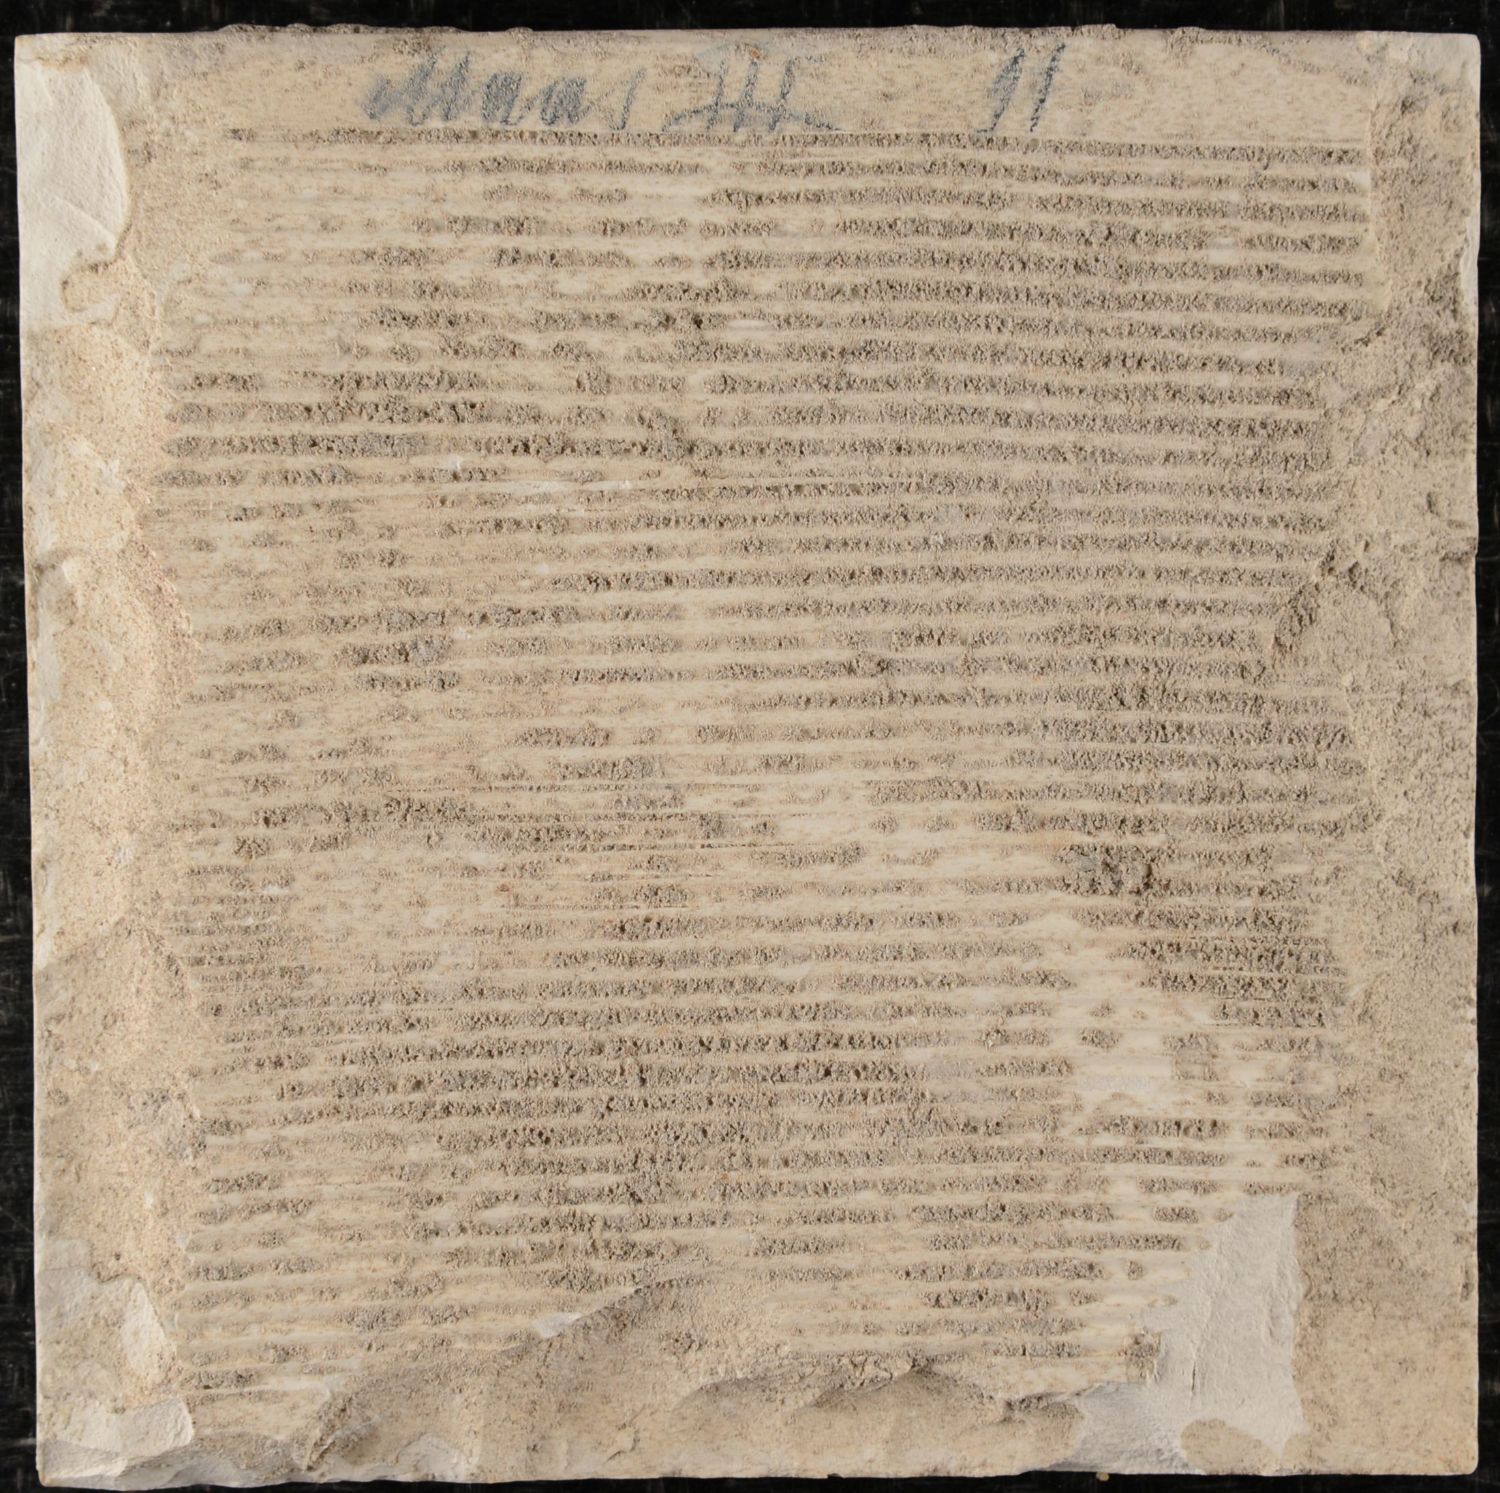 Maas III 91